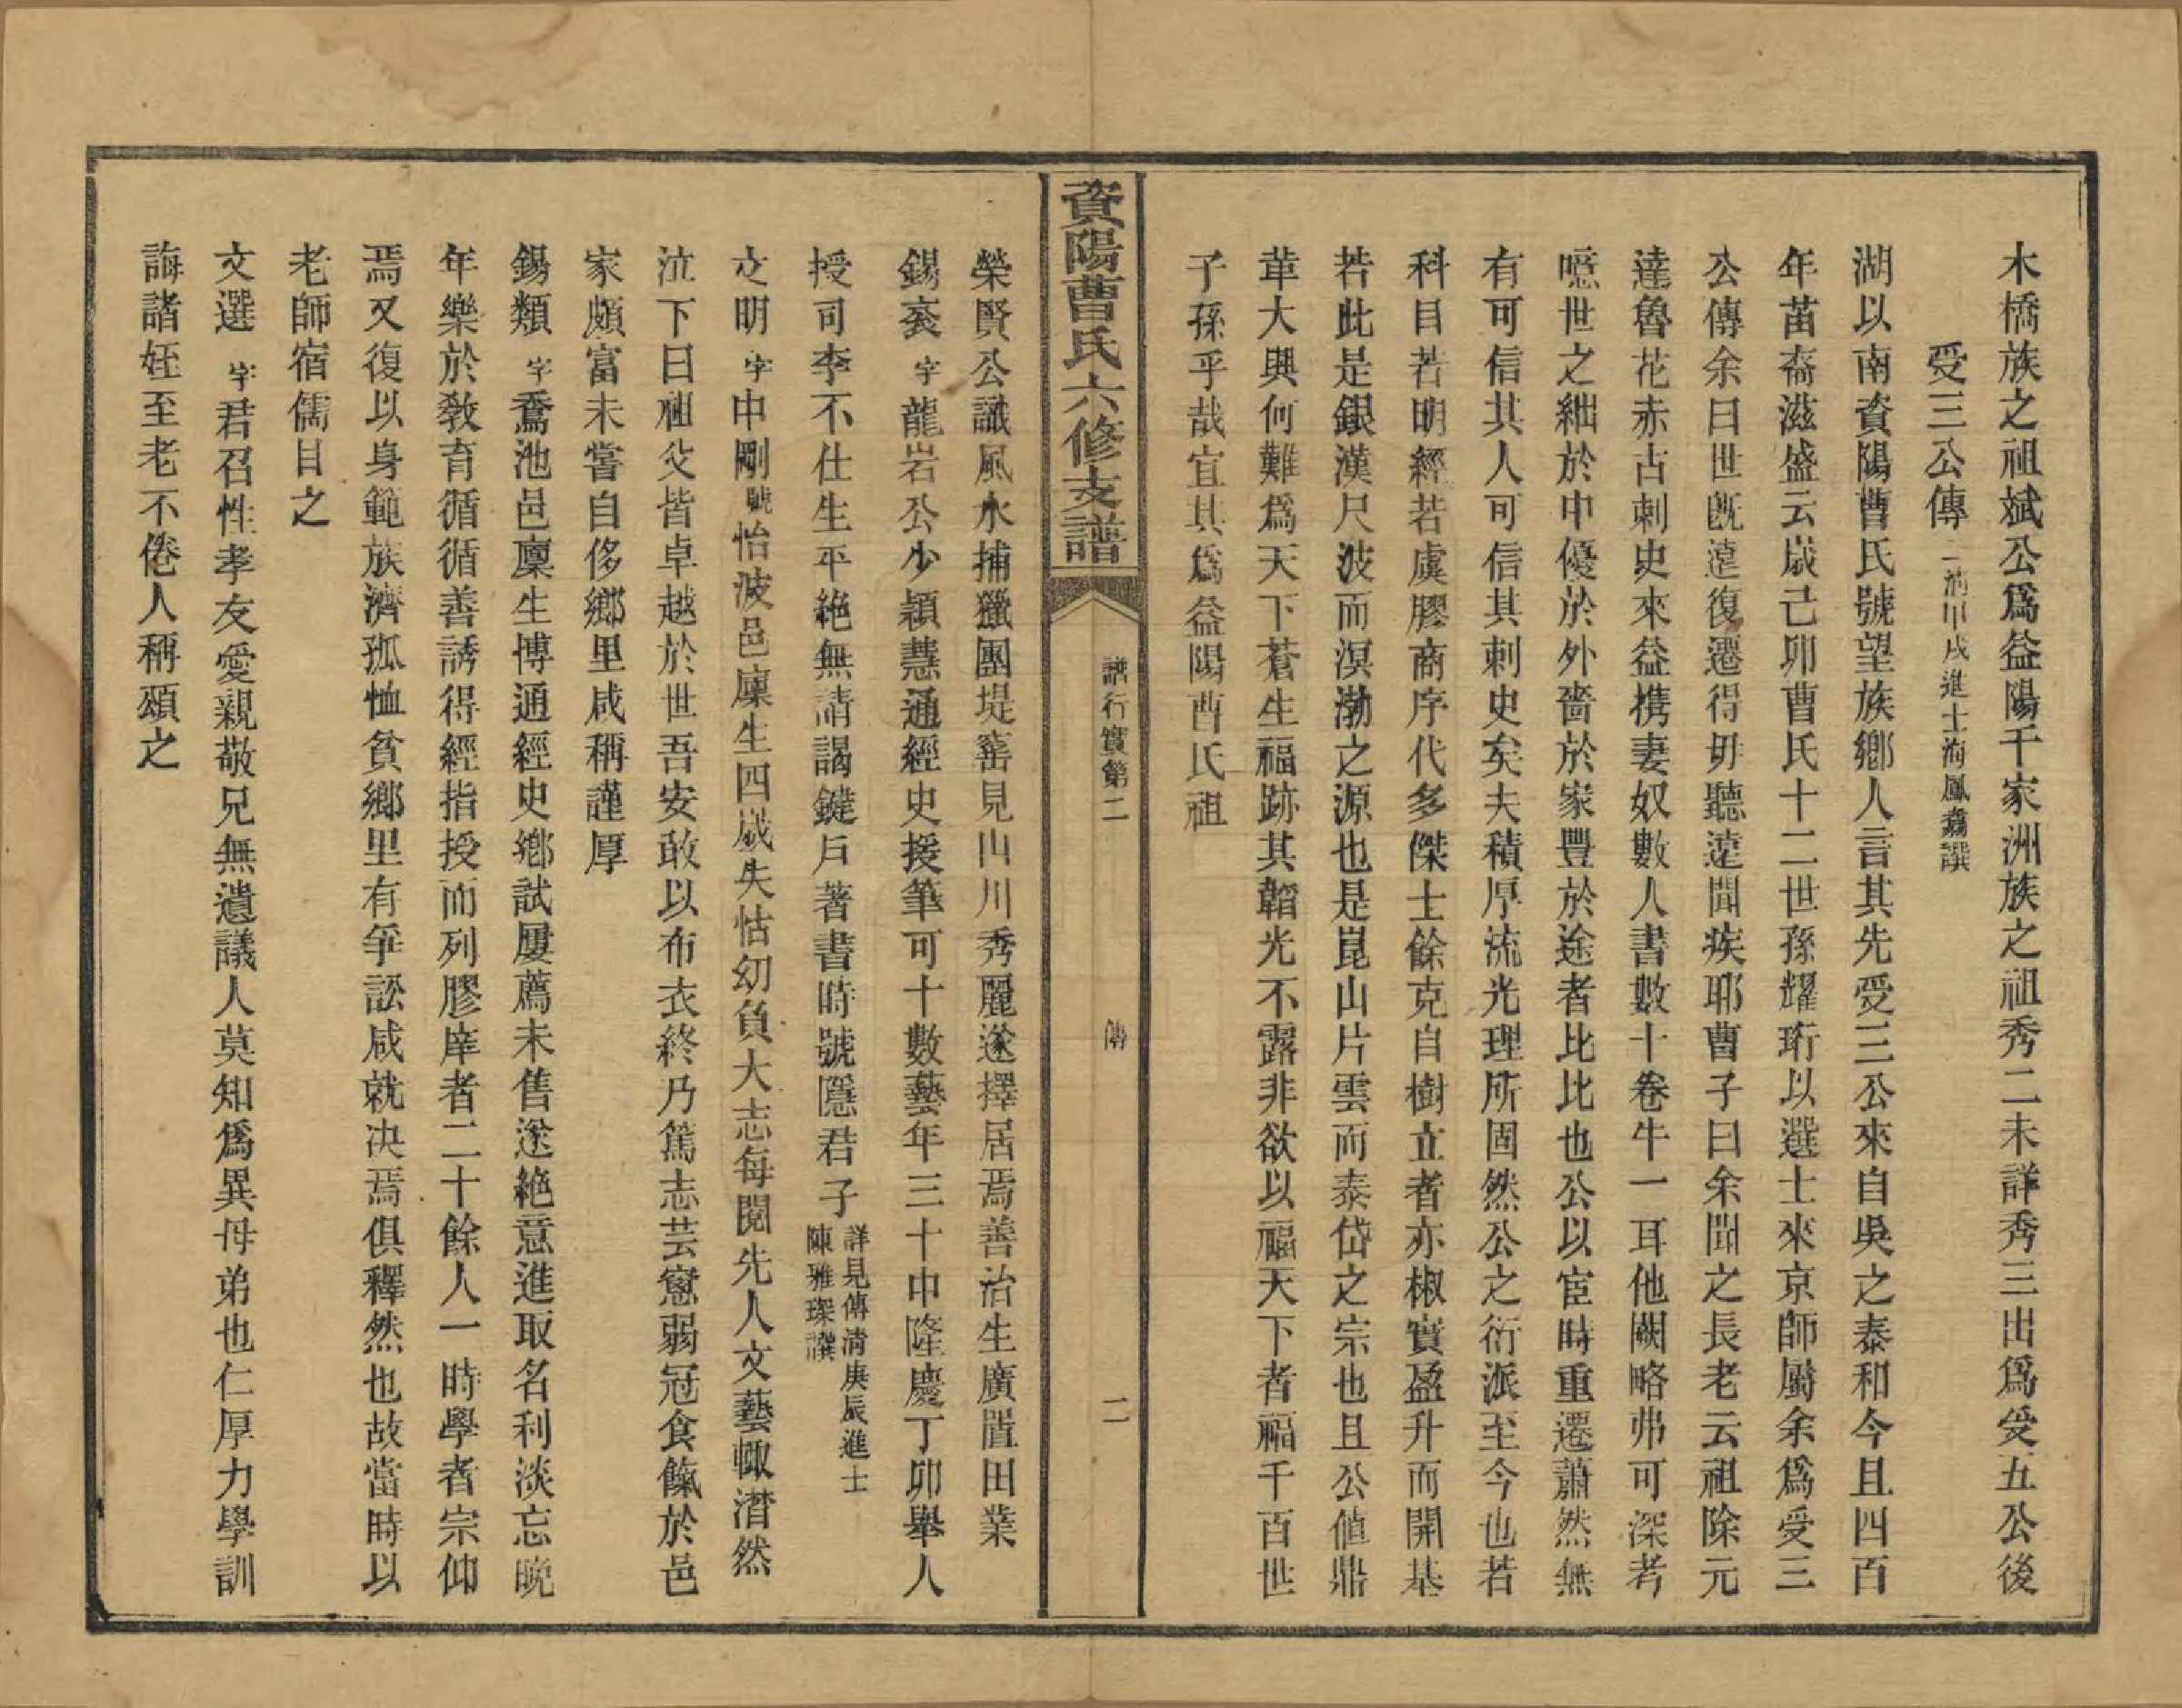 木橋族之祖斌公爲益陽千家洲族之祖秀二未詳秀三出爲受五公後
受三公傳 甲戌進士海鳳翥譔
湖以南資陽曹氏號望族鄉人言其先受三公來自吳之泰和今且四百
年苗裔滋盛云歲己卯曹氏十二世孫耀珩以選士來京師屬余爲受三
公傳余曰世旣遠復遷得毋聽遠聞疾耶曹子曰余聞之長老云祖除元
達魯花赤古剌史來益携妻奴數人書數十卷牛一耳他闕略弗可深考
噫世之絀於中優於外嗇於家豐於途者比比也公以宦時重遷蕭然無
有可信其人可信其刺史矣夫積厚流光理所固然公之衍派至今也若
科目若明經若虞膠商序代多傑士餘克自樹立者亦椒實盈升而開基
若此是銀漢尺波而溟渤之源也是崑山片雲而泰岱之宗也且公値鼎
革大興何難爲天下蒼生福跡其韜光不露非欲以福天下者福千百世
子孫乎哉宜其爲益陽曹氏祖
資陽曹氏六修支譜
譜行實第二
傳
二
榮賢公諏風水捕獵團堤窰見山川秀麗遂擇居焉善治生廣置田業
錫袞 字龍岩公少穎慧通經史援筆可十數藝年三十中隆慶丁卯舉人
授司李不仕生平絶無請謁鍵戶著書時號隱君子 詳見傳清庚辰進士陳雅琛譔
文明 字中剛 號怡波邑廩生四歲失怙幼負大志每閱先人文藝輒潸然
泣下曰祖父皆卓越於世吾安敢以布衣終乃篤志芸窻弱冠食餼於邑
家頗富未嘗自侈鄉里咸稱謹厚
錫類 字喬池邑廩生博通經史鄉試屢薦未售遂絶意進取名利淡忘晚
年樂於敎育循循善誘得經指授而列膠庠者二十餘人一時學者宗仰
焉又復以身範族濟孤恤貧鄉里有爭訟咸就决焉俱釋然也故當時以
老師宿儒目之
文選 字君召性孝友愛親敬兄無遺議人莫知爲異母弟也仁厚力學訓
誨諸姪至老不倦人稱頌之